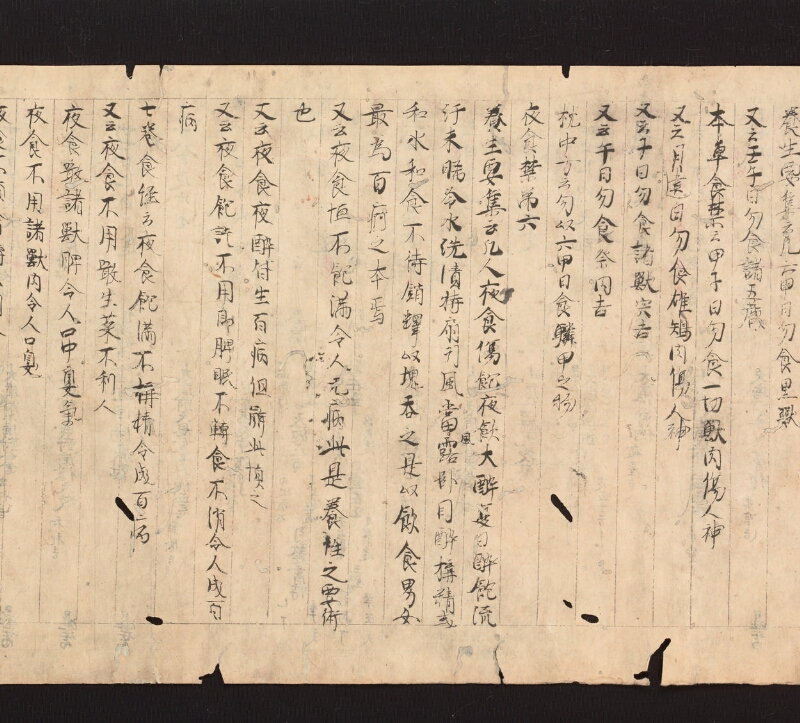 養生要集云凡六甲日勿食黒獸
又云壬午日勿食諸五蔵
本草食禁云甲子日勿食一切獸肉傷人神
又云月建日勿食雄雉肉傷人神
又云子日勿食諸獸完吉
又云午日勿食祭肉吉
枕中方云勿以六甲日食鱗甲之物
夜食禁第六
養生要集云凡人夜食傷飽夜飲大醉夏日醉飽流
汗未晞冷水洗漬持扇引風當風露卧因醉構精或
和水和食不待銷釋以塊吞之是以飲食男女
最為百痾之本焉
又云夜食恒不飽滿令人无病此是養性之要術
也
又云夜食夜醉皆生百病但解此慎之
又云夜食飽訖不用即眠不轉食不消令人成百
病
七巻食經云夜食飽滿不構精令成百病
又云夜食不用啖生菜不利人
夜食啖諸獸脾令人口中臭氣
夜食不用諸獸肉令人口臭